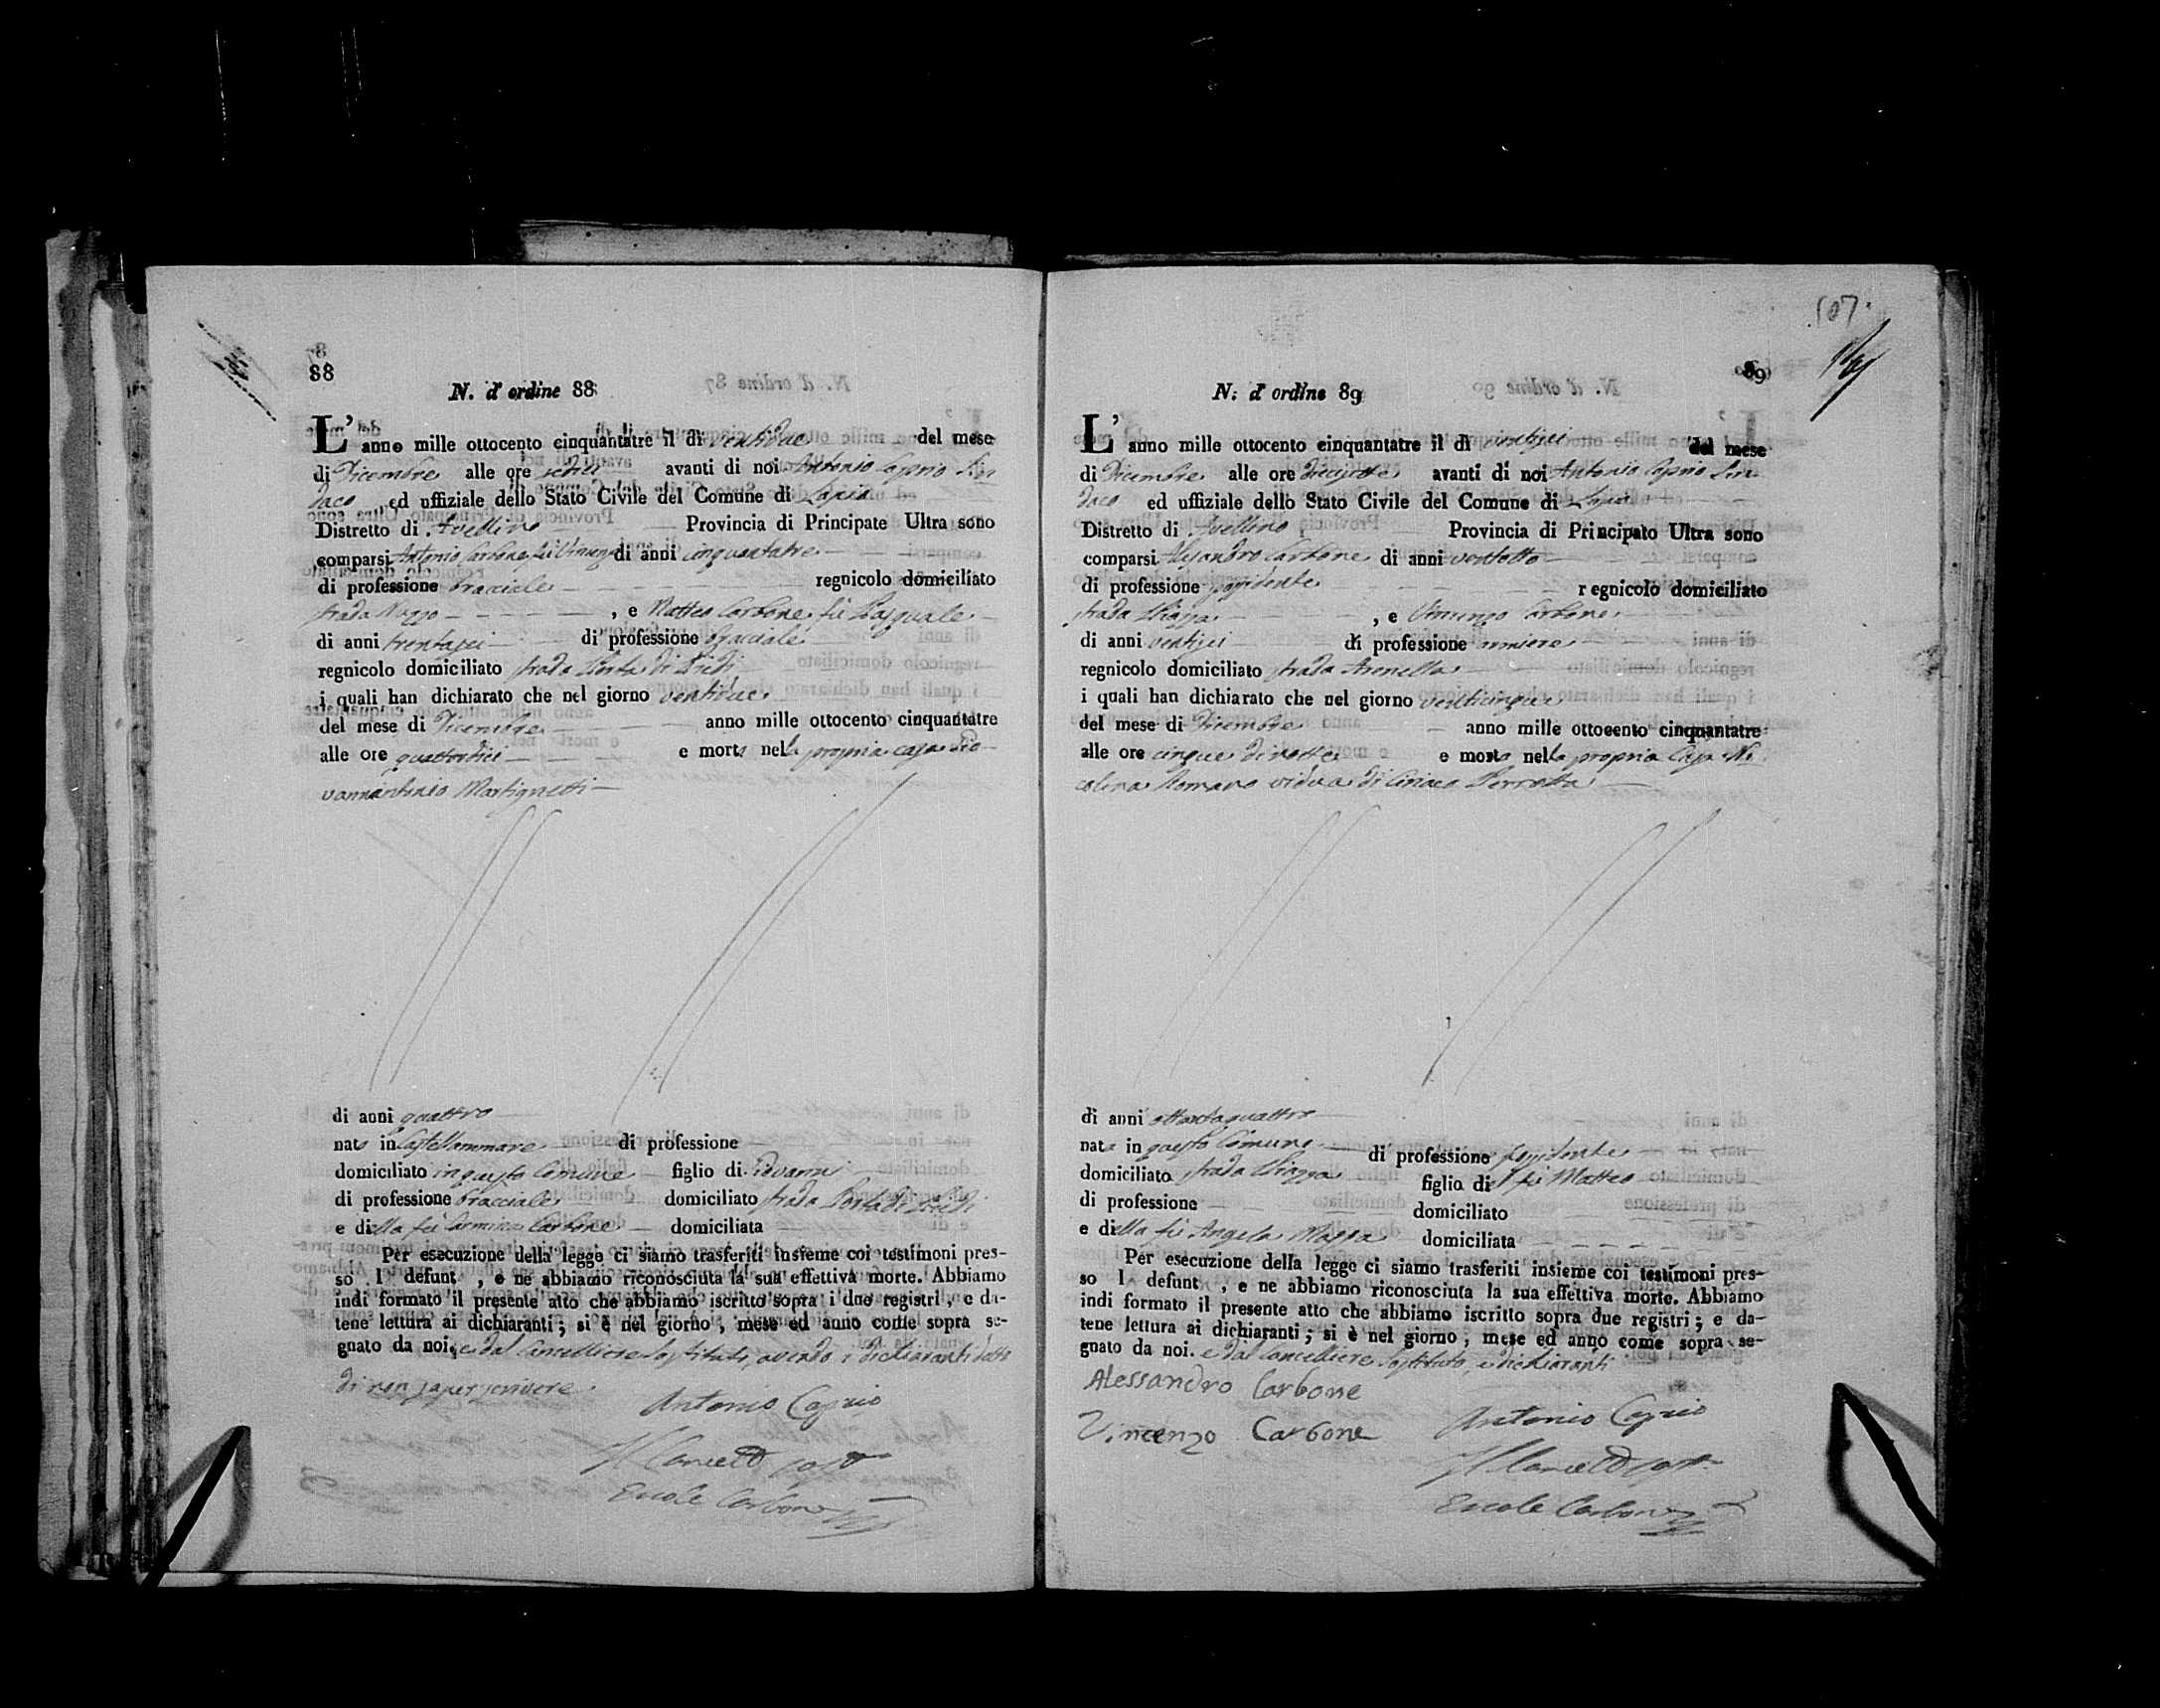 88
N. d' ordine 88
L' anno mille ottocento cinquantatre il dì ventidue del mese
di Dicembre alle ore sedici avanti di noi Antonio Caprio Sin
daco ed uffiziale dello Stato Civile del Comune di Lapio
Distretto di Avellino Provincia di Principate Ultra sono
comparsi Antonio Carbone fu Vincenzo di anni cinquantatre
di professione bracciale regnicolo domiciliato
strada , e Matteo Carbone fu Pasquale
di anni trentasei di professione bracciale
regnicolo domiciliato strada Porta di Piedi
i quali han dichiarato che nel giorno ventidue
del mese di Dicembre anno mille ottocento cinquantatre
alle ore quattordici e morto nella propria casa Gio
vannantonio Martignetti
di anni quattro
nato in Castellammare di professione
domiciliato in questo Comune figlio di Giovanni
di professione bracciale domiciliato strada Porta di Piedi
e di della fu Carmina Carbone domiciliata
Per esecuzione della legge ci siamo trasferiti insieme coi testimoni pres-
so l defunt , e ne abbiamo riconosciuta la sua effettiva morte. Abbiamo
indi formato il presente atto che abbiamo iscritto sopra i due registri, e da-
tene lettura ai dichiaranti; si è nel giorno, mese ed anno come sopra se-
gnato da noi, e dal Cancelliere sostituto, avendo i dichiaranti detto
di non saper scrivere.
Antonio Caprio
Il Cancell sost
Ercole Carbone
107.
89
N. d' ordine 89
L' anno mille ottocento cinquantatre il dì ventisei del mese
di Dicembre alle ore diecisette avanti di noi Antonio Caprio Sin
daco ed uffiziale dello Stato Civile del Comune di Lapio
Distretto di Avellino Provincia di Principato Ultra sono
comparsi Alessandro Carbone di anni ventotto
di professione possidente regnicolo domiciliato
strada Piazza , e Vincenzo Carbone
di anni ventisei di professione armiere
regnicolo domiciliato strada Arenella
i quali han dichiarato che nel giorno venticinque
del mese di Dicembre anno mille ottocento cinquantatre
alle ore cinque di notte e morta nella propria Casa Ni
colina Romano vidua di Ciriaco Perrotta
di anni ottantaquattro
nata in questo Comune di professione possidente
domiciliato strada Piazza figlia del fu Matteo
di professione domiciliato
e di della fu Angela Mazza domiciliata
Per esecuzione della legge ci siamo trasferiti insieme coi testimoni pres-
so l defunt , e ne abbiamo riconosciuta la sua effettiva morte. Abbiamo
indi formato il presente atto che abbiamo iscritto sopra due registri; e da-
tene lettura ai dichiaranti; si è nel giorno, mese ed anno come sopra se-
gnato da noi. e dal Cancelliere sostituto, e dichiaranti
Alessandro Carbone
Vincenzo Carbone
Antonio Caprio
Il Cancell sost
Ercole Carbone